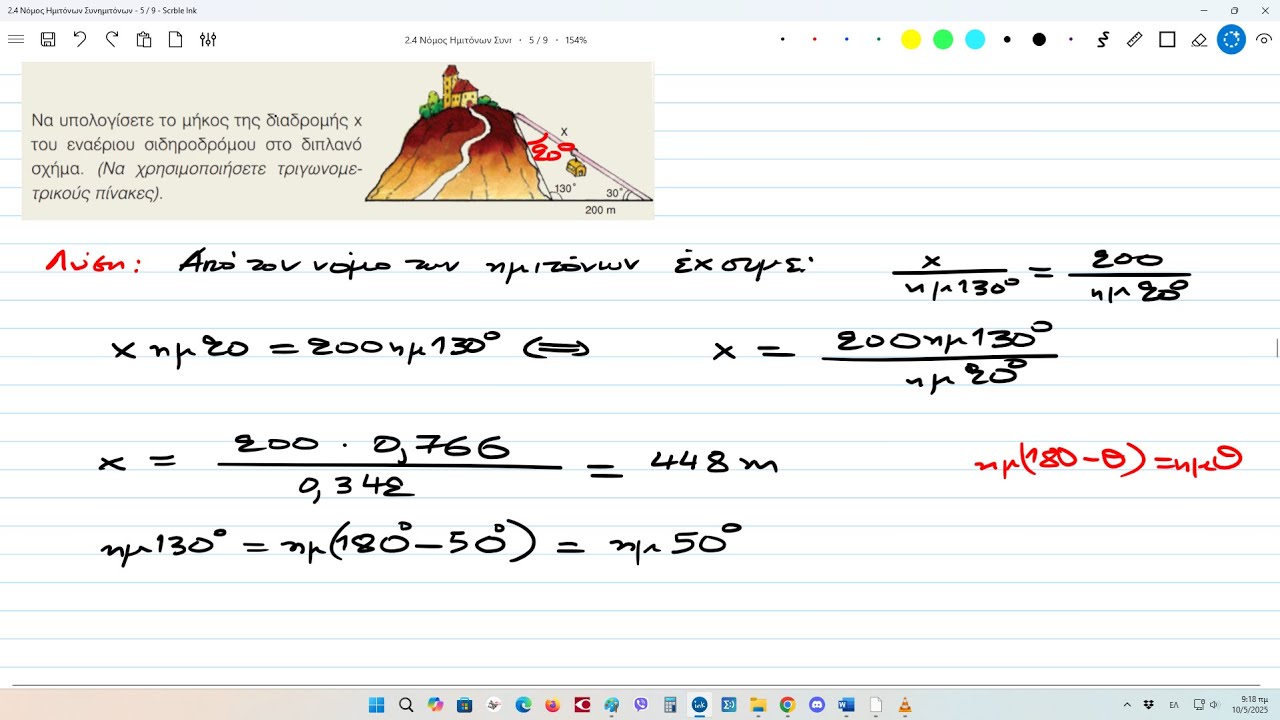 2.4 Νόμος Ημιτόνων Συνημιτόνων - 5 / 9 - Scrble Ink
2.4 Νόμος Ημιτόνων Συνr • 5 / 9 • 154%
Να υπολογίσετε το μήκος της διαδρομής x
του εναέριου σιδηροδρόμου στο διπλανό
σχήμα. (Να χρησιμοποιήσετε τριγωνομε-
τρικούς πίνακες).
x
20°
130°
30°
200 m
Λύση: Από τον νόμο των ημιτόνων έχουμε: x / ημ130° = 200 / ημ20°
x ημ20 = 200ημ130° ⟺ x = 200ημ130° / ημ20°
x = 200 · 0,766 / 0,342 = 448 m
ημ(180-θ) = ημθ
ημ130° = ημ(180° - 50°) = ημ50°
ink
ΕΛ
9:18 πμ
10/5/2025